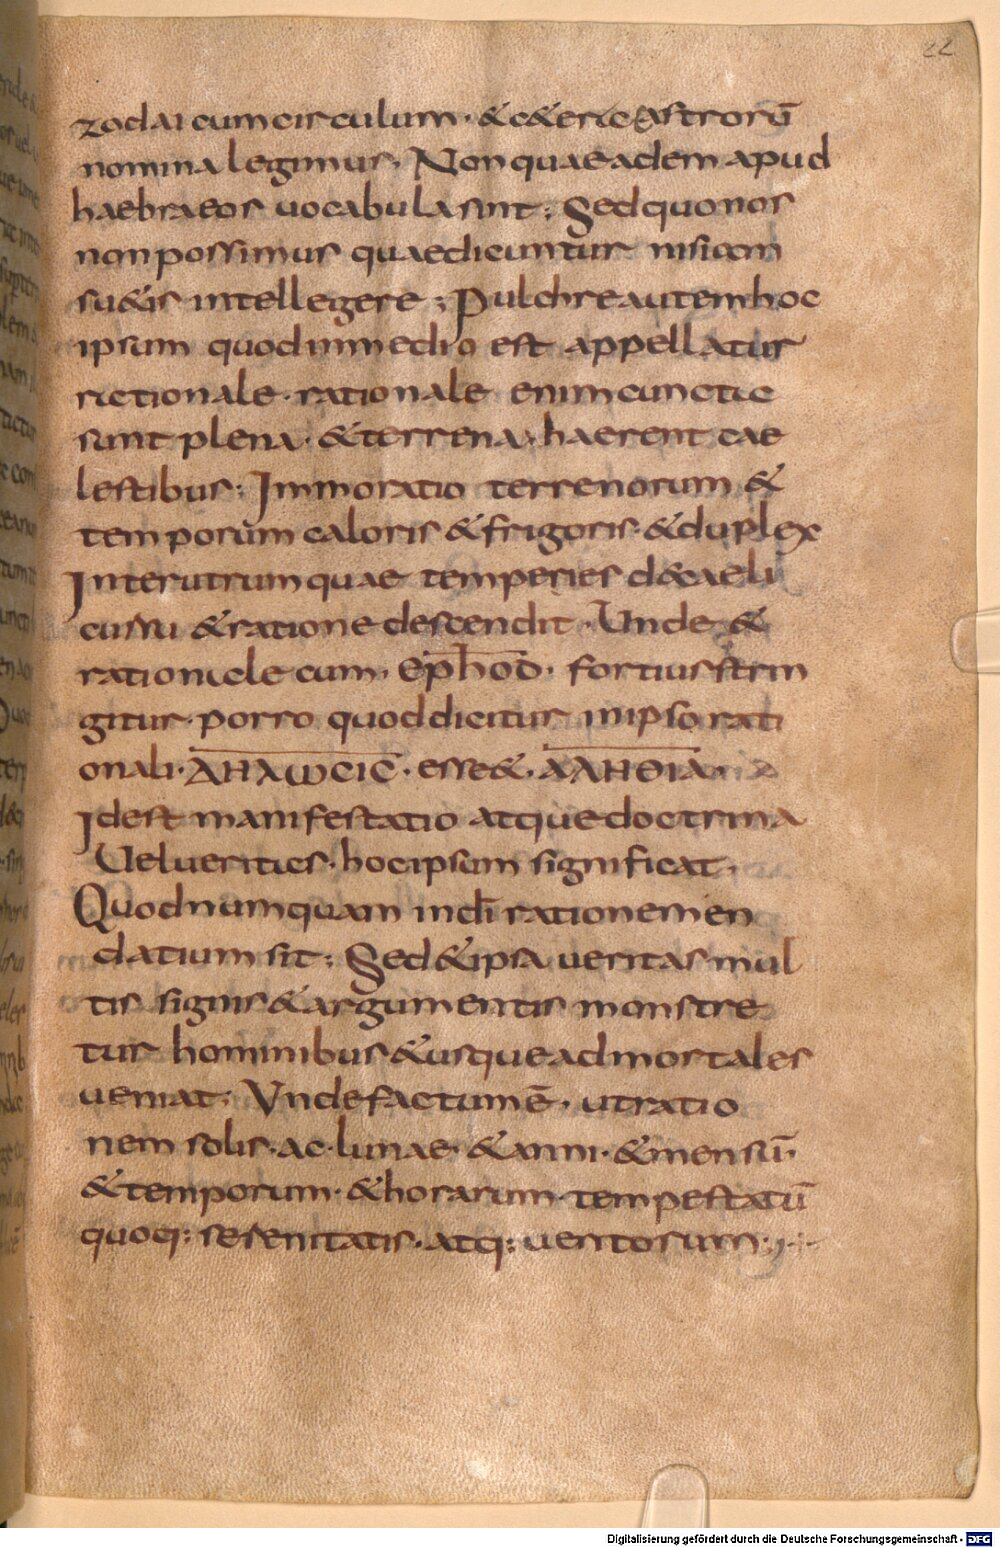 22
zodaicum circulum · & c&eraastrorū
nomina legimus · Non quae adem apud
haebraeos uocabula sint ; Sed quo nos
non possimus quae dicuntur nisi com
su&is intellegere ; Pulchre autem hoc
ipsum quod in medio est appellatur
rationale · rationale enim cuncta
sunt plena · & terrena · haerent cae
lestibus ; Immo ratio terrenorum &
temporum caloris & frigoris · & duplex
Inter utrum quae temperies de caeli
cursu & ratione descendit · Unde &
rationale cum · EPHOD · fortius strin
gitur · porro quod dicitur in ipso rati
onali · ΔΗΛωCΙC · esse & · ΑΛΗΘΙΑ
Idest manifestatio atque doctrina
Uel ueritas · hoc ipsum significat ·
Quod numquam in dī ratione men
datium sit ; Sed & ipsa ueritas mul
tis signis & argumentis monstre
tur hominibus & usque ad mortales
ueniat ; Vnde factum ē · ut ratio
nem solis · ac · lunae · & anni · & mensū ·
& temporum · & horarum · tempestatū
quoq: serenitatis · atq: uentorum ·
Digitalisierung gefördert durch die Deutsche Forschungsgemeinschaft - DFG